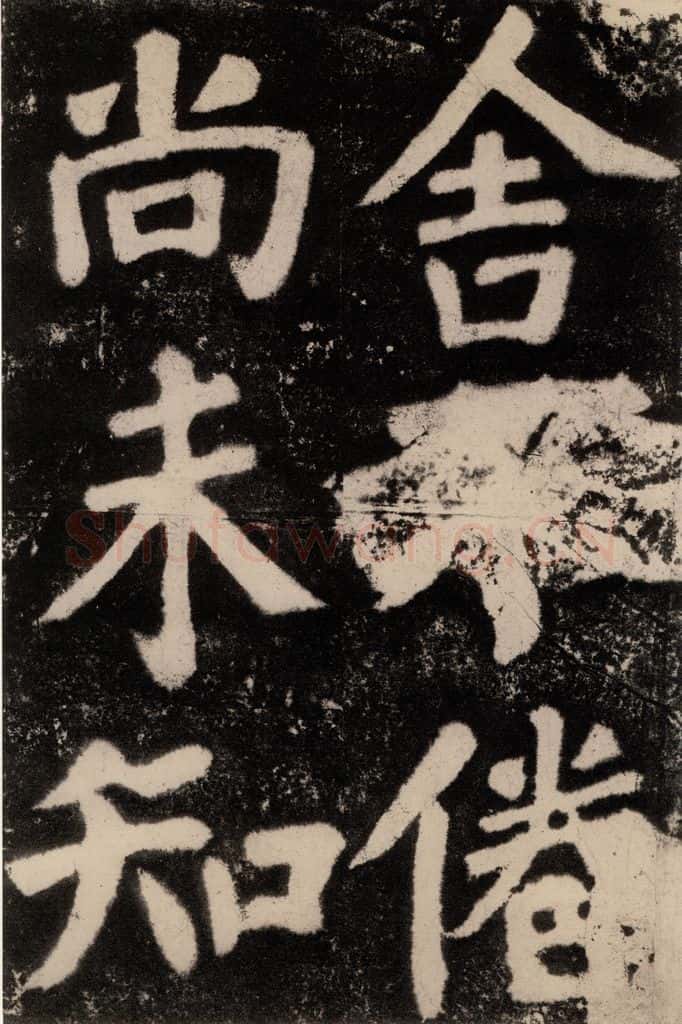 舍不倦
尚未知
Shufawang.CN